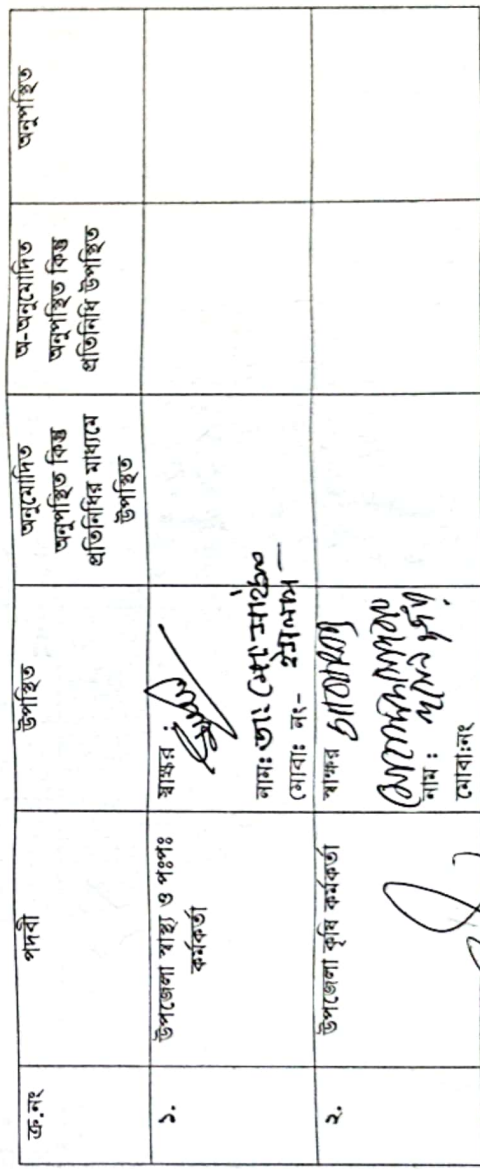 ক্র.নং
পদবী
উপস্থিত
অনুমোদিত
অনুপস্থিত কিন্তু
প্রতিনিধির মাধ্যমে
উপস্থিত
অ-অনুমোদিত
অনুপস্থিত কিন্তু
প্রতিনিধি উপস্থিত
অনুপস্থিত
১.
উপজেলা স্বাস্থ্য ও পঃপঃ
কর্মকর্তা
স্বাক্ষর :
নাম: ডাঃ মোঃ
মোবা: নং-
২.
উপজেলা কৃষি কর্মকর্তা
স্বাক্ষর
নাম :
মোবা:নং